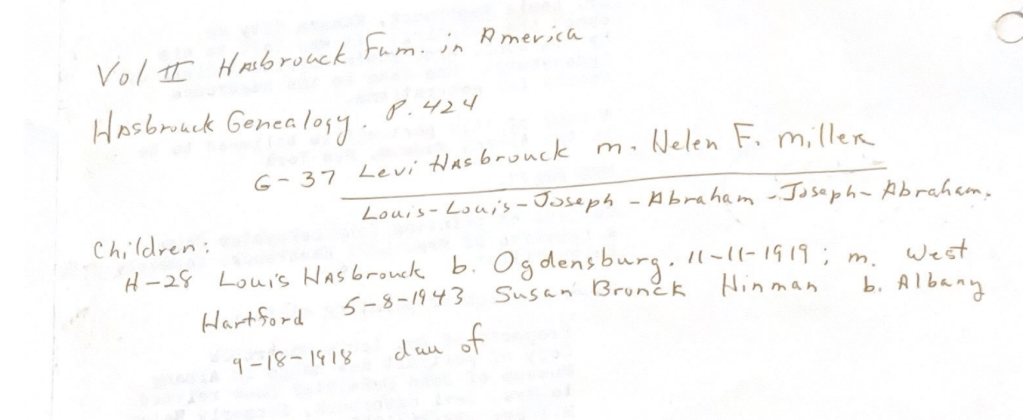 Vol II Hasbrouck Fam. in America
Hasbrouck Genealogy. P. 424
G-37 Levi Hasbrouck m. Helen F. Miller
Louis-Louis-Joseph-Abraham-Joseph-Abraham.
Children:
H-28 Louis Hasbrouck b. Ogdensburg. 11-11-1919; m. West
Hartford 5-8-1943 Susan Bronck Hinman b. Albany
9-18-1918 dau of